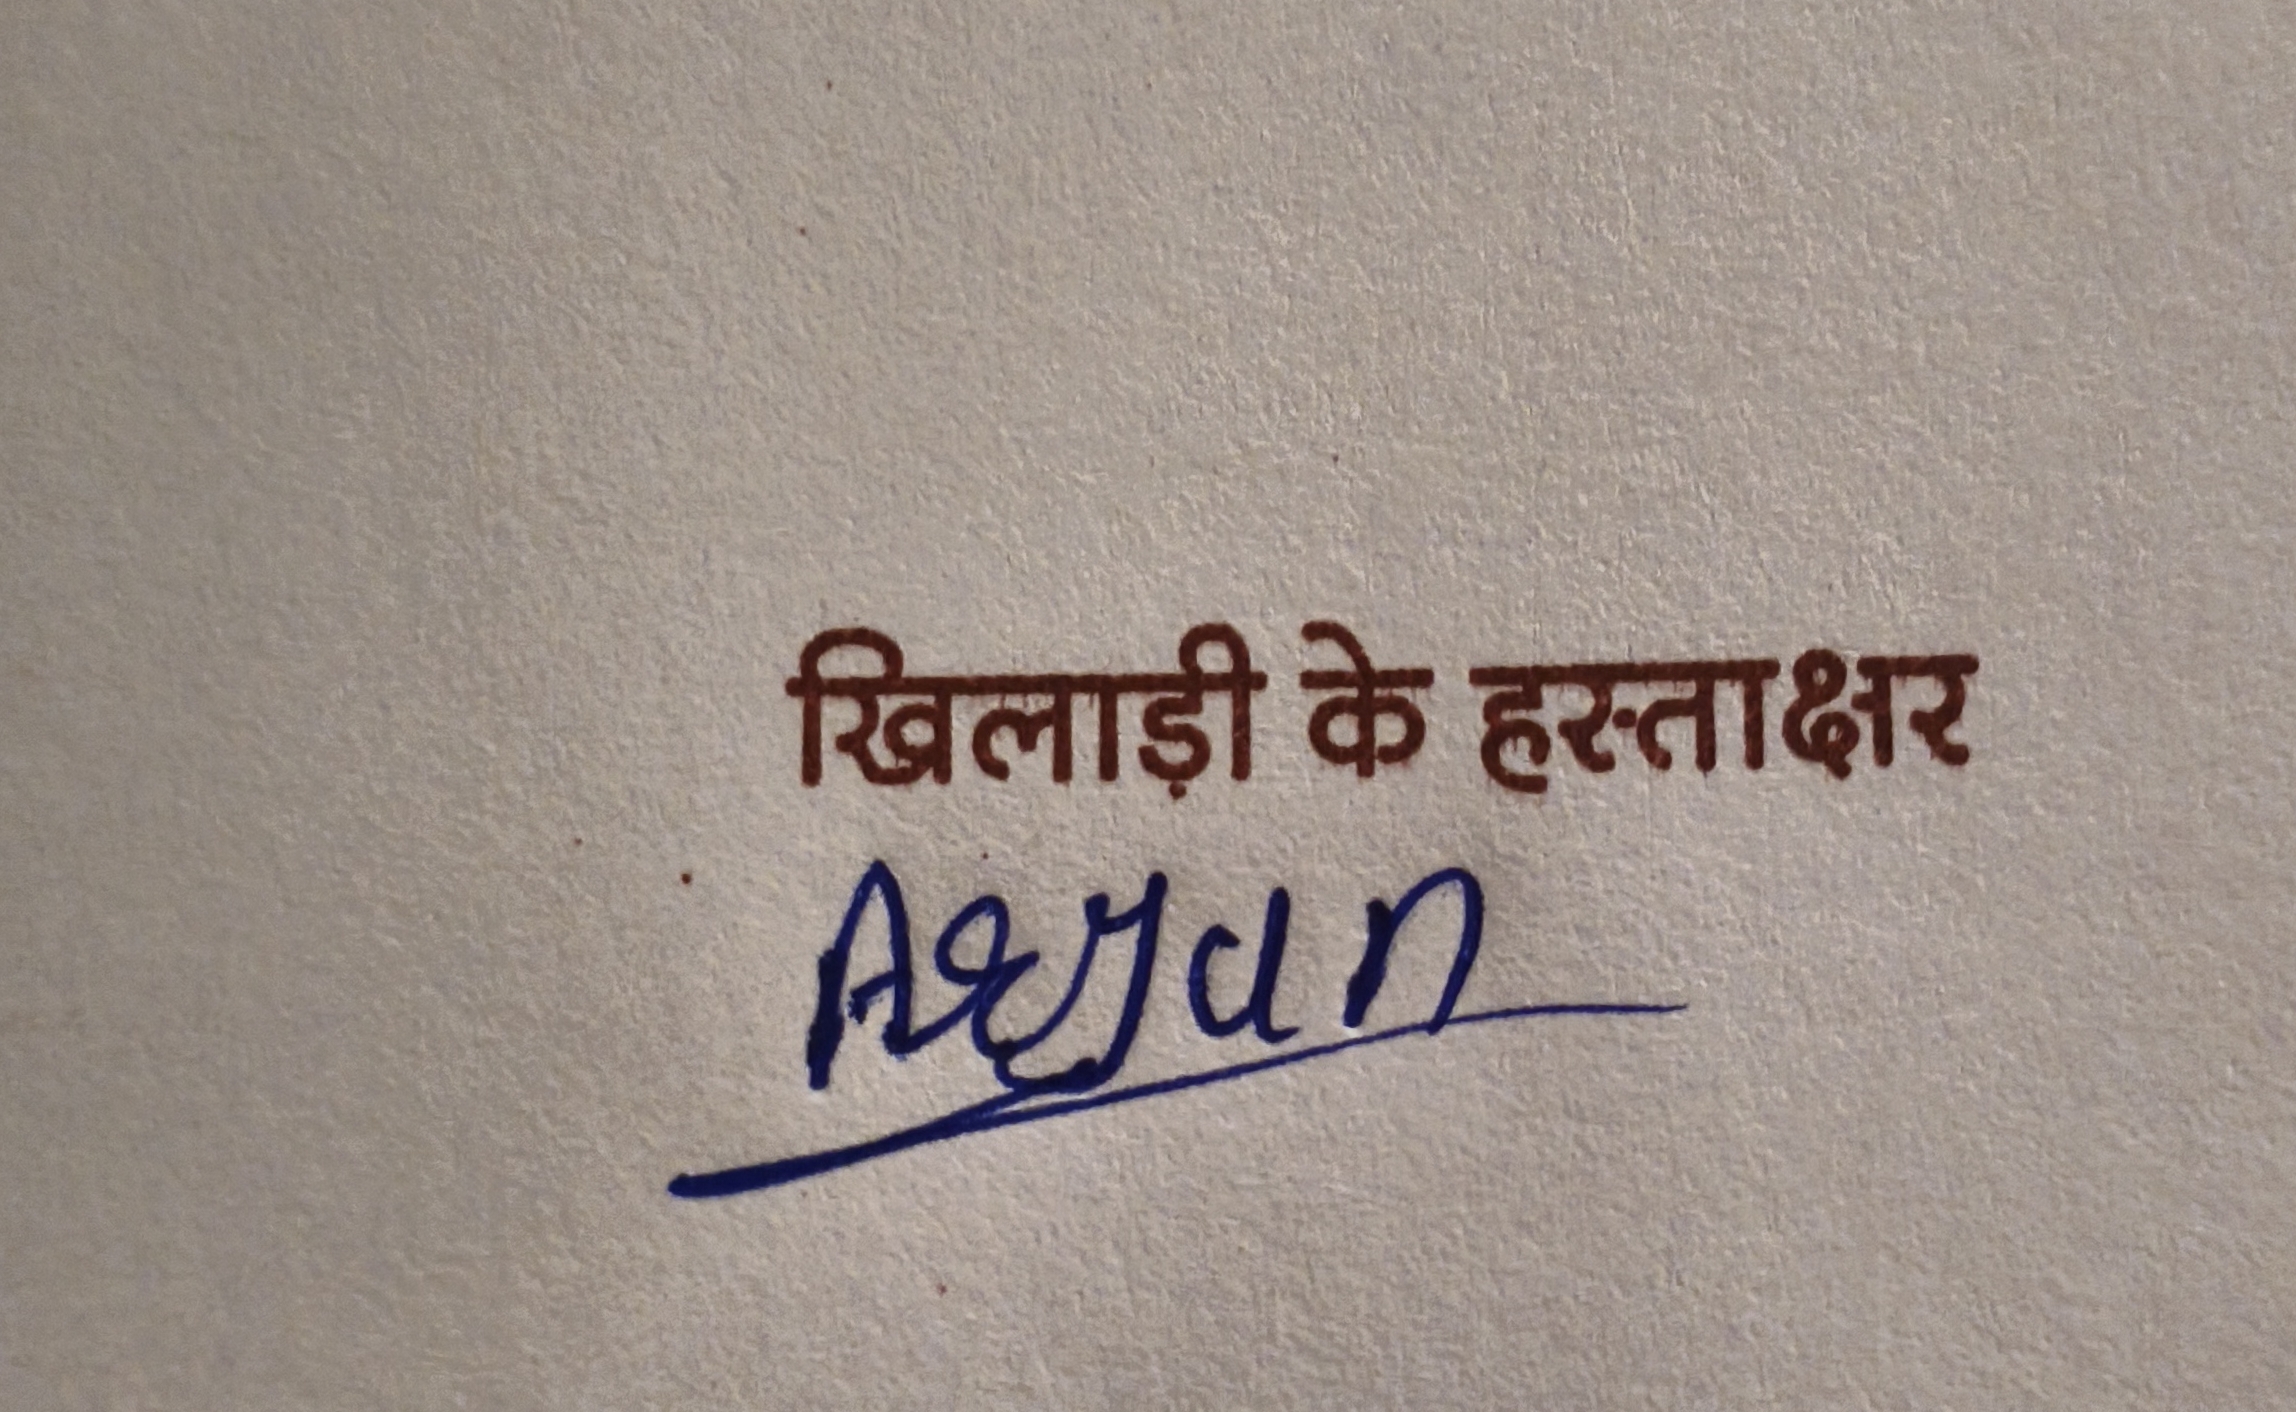 खिलाड़ी के हस्ताक्षर
Aryan